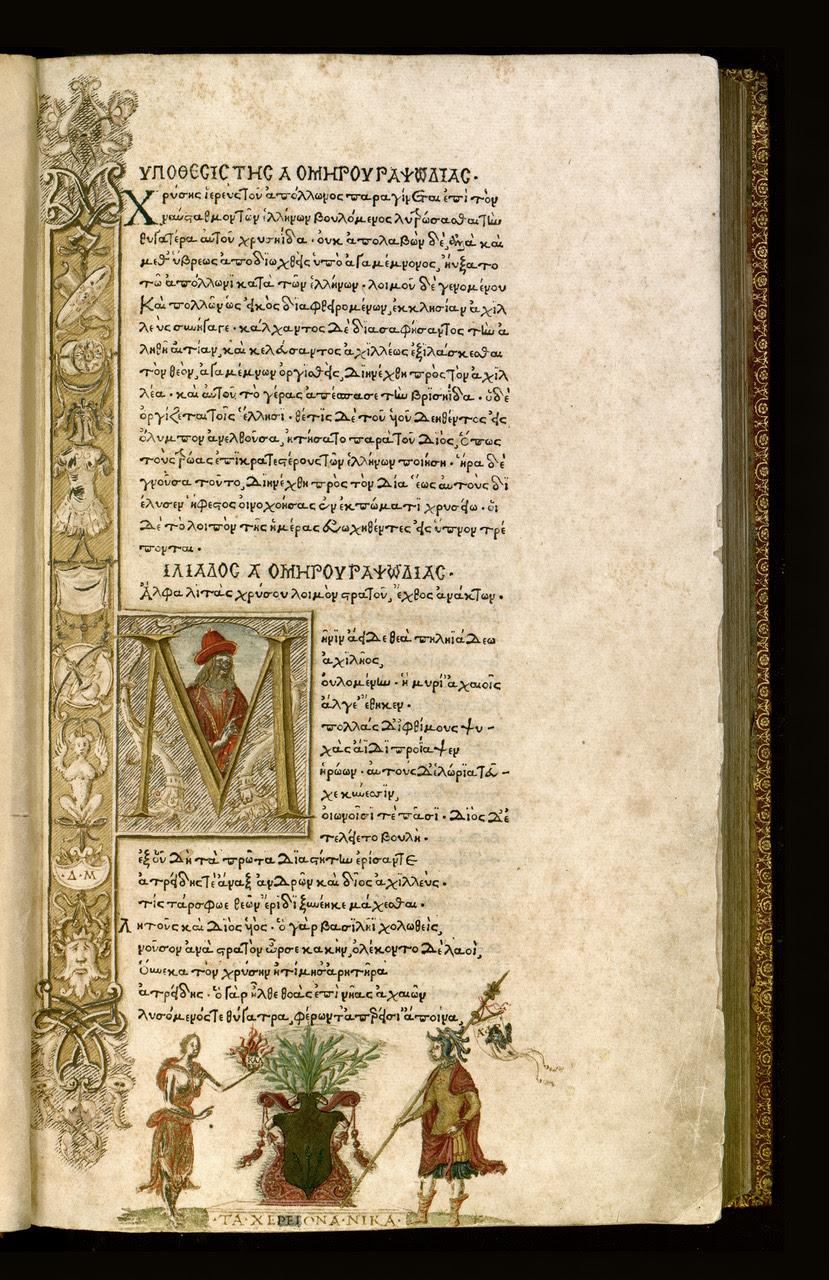 ΥΠΟΘΕCΙC ΤΗC Α ΟΜΗΡΟΥ ΡΑΨΩΔΙΑC·
Χρύσης ἱερεὺς τοῦ ἀπόλλωνος παραγίνεται ἐπὶ τὸν
ναύσταθμον τῶν ἑλλήνων βουλόμενος λυτρώσασθαι τὴν
θυγατέρα αὐτοῦ χρυσηΐδα· οὐκ ἀπολαβὼν δὲ, ἀλλὰ καὶ
μεθ' ὕβρεως ἀποδιωχθεὶς ὑπὸ ἀγαμέμνονος, ηὔξατο
τῶ ἀπόλλωνι κατὰ τῶν ἑλλήνων· λοιμοῦ δὲ γενομένου
Καὶ πολλῶν ὡς εἰκὸς διαφθειρομένων, ἐκκλησίαν ἀχιλ
λεὺς συνήγαγε· κάλχαντος δὲ διασαφήσαντος τὴν ἀ
ληθῆ αἰτίαν, καὶ κελεύσαντος ἀχιλλέως ἐξιλάσκεσθαι
τὸν θεὸν, ἀγαμέμνων ὀργισθεὶς, διηνέχθη πρὸς τὸν ἀχιλ
λέα· καὶ αὐτοῦ τὸ γέρας ἀπέσπασε τὴν βρισηίδα· ὁ δὲ
ὀργίζεται τοῖς ἕλλησι· θέτις δὲ τοῦ υἱοῦ δεηθέντος εἰς
ὄλυμπον ἀνελθοῦσα, ἠτήσατο παρὰ τοῦ διὸς, ὅπως
τοὺς τρῶας ἐπικρατεστέρους τῶν ἑλλήνων ποιήση· ἥρα δὲ
γνοῦσα τοῦτο, διηνέχθη πρὸς τὸν δία· ἕως αὐτοὺς δι
έλυσεν ἥφεστος οἰνοχοήσας ἐν ἐκπώματι χρυσέω· οἱ
δὲ τὸ λοιπὸν τῆς ἡμέρας εὐωχηθέντες εἰς ὕπνον τρέ
πονται·
ΙΛΙΑΔΟC Α ΟΜΗΡΟΥ ΡΑΨΩΔΙΑC·
Ἄλφα λιτὰς χρύσου λοιμὸν στρατοῦ, ἔχθος ἀνάκτων·
Μῆνιν ἄειδε θεὰ πηληϊάδεω
ἀχιλῆος,
οὐλομένην· ἣ μυρί' ἀχαιοῖς
ἄλγε' ἔθηκεν·
πολλὰς δ' ἰφθίμους ψυ-
χὰς ἄϊδι προΐαψεν
ἡρώων· αὐτοὺς δ' ἑλώρια τεῦ-
χε κύνεσσιν,
οἰωνοῖσί τε πᾶσι· διὸς δ' ἐ
τελείετο βουλή·
ἐξ οὗ δὴ τὰ πρῶτα διαστήτην ἐρίσαντε
ἀτρείδης τε ἄναξ ἀνδρῶν καὶ δῖος ἀχιλλεύς·
τίς τάρ σφωε θεῶν ἔριδι ξυνέηκε μάχεσθαι·
Λητοῦς καὶ διὸς υἱός· ὁ γὰρ βασιλῆϊ χολωθεὶς,
νοῦσον ἀνὰ στρατὸν ὦρσε κακὴν, ὀλέκοντο δὲ λαοί,
Οὕνεκα τὸν χρύσην ἠτίμησ' ἀρητῆρα
ἀτρείδης· ὁ γὰρ ἦλθε θοὰς ἐπὶ νῆας ἀχαιῶν
λυσόμενός τε θύγατρα, φέρων τ' ἀπερείσι' ἄποινα,
·Δ·Μ
·ΤΑ·ΧΕΡΕΙΟΝΑ·ΝΙΚΑ·